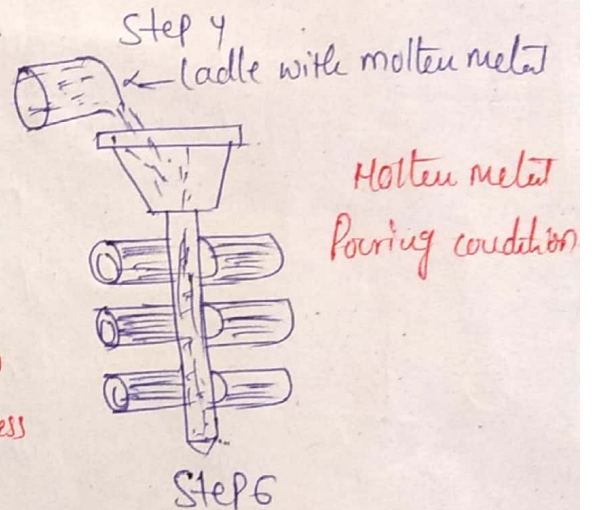 Step 4
ladle with molten metal
Molten metal
Pouring condition
ess
Step 6